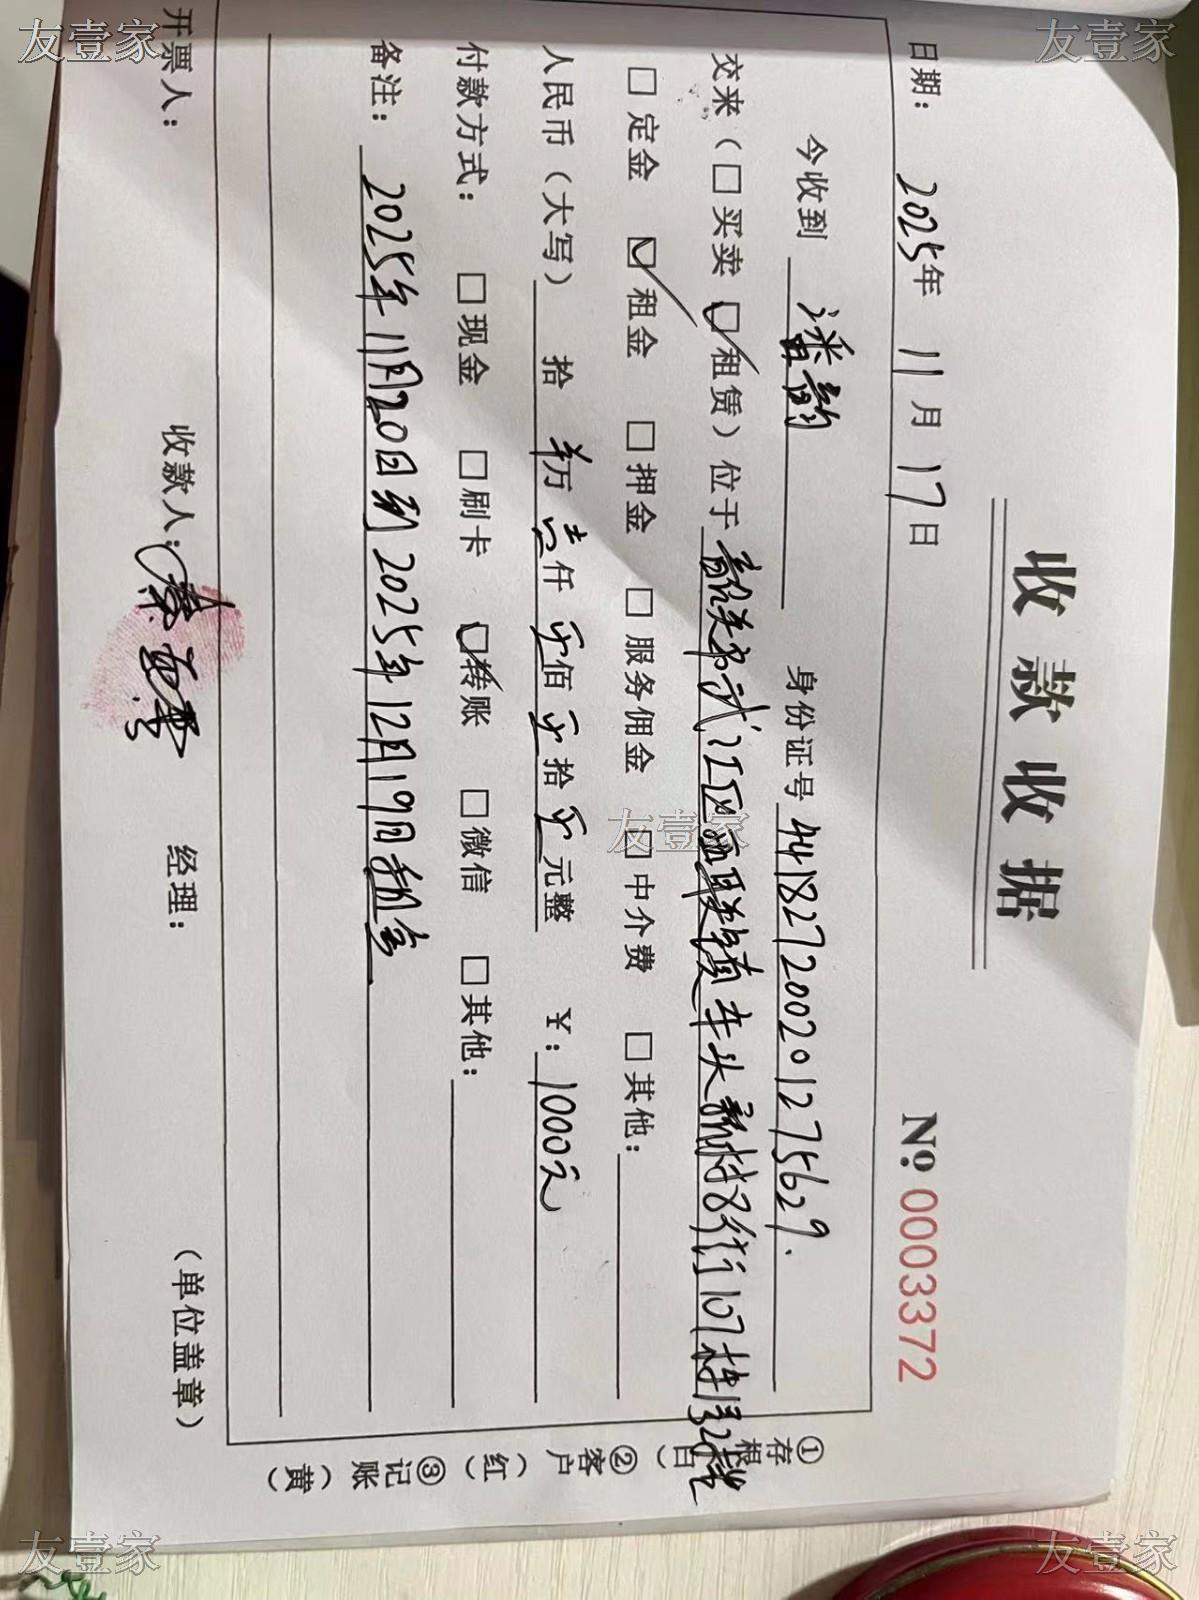 收款收据
№ 0003372
日期: 2025年 11月 17日
今收到 潘韵 身份证号 441827200201275629.
交来（□买卖 ☑租赁）位于 韶关市武江区西联镇车头新村8街107栋
□定金 ☑租金 □押金 □服务佣金 □中介费 □其他:
人民币（大写） 拾 万 壹仟 零佰 零拾 零元整 ¥: 1000元
付款方式: □现金 □刷卡 ☑转账 □微信 □其他:
备注: 2025年11月20日到2025年12月19日租金
开票人: 收款人: 经理: （单位盖章）
①存根（白） ②客户（红） ③记账（黄）
友壹家
友壹家
友壹家
友壹家
友壹家